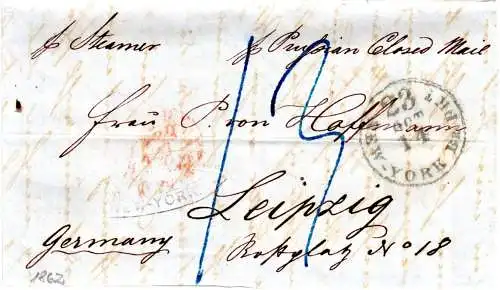 p Steamer p Prussian Closed Mail
13
23
OCT
14
NEW-YORK B. PKT
Frau P. von Hoffmann
NEW-YORK
Leipzig
Germany Roßplatz No 18
1862